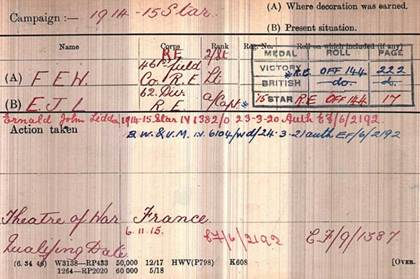 Campaign :— 1914-15 Star. (A) Where decoration was earned.
(B) Present situation.
Name Corps Rank Reg. No. Roll on which included (if any)
MEDAL ROLL PAGE
R.E. 2/Lt
(A) F E W 461 Field Co. R.E. Lt VICTORY R.E. OFF 144 222
BRITISH do. do.
(B) E J L 62. Div R.E. a/Capt 15 STAR R.E OFF 44 17
Ernald John 1914-15 Star IV 1382/0 23-3-20 Auth EF/6/2192
Action taken B.W. & V.M. IV. 6104/ d/24-3-21 auth EF/6/2192
Theatre of War France
Qualifying Date 6.11.15. EF/6/2192 EF/9/1587
(6 34 46) W3138—RP433 50,000 12/17 HWV(P798) K608
1264—RP2020 60,000 5/18